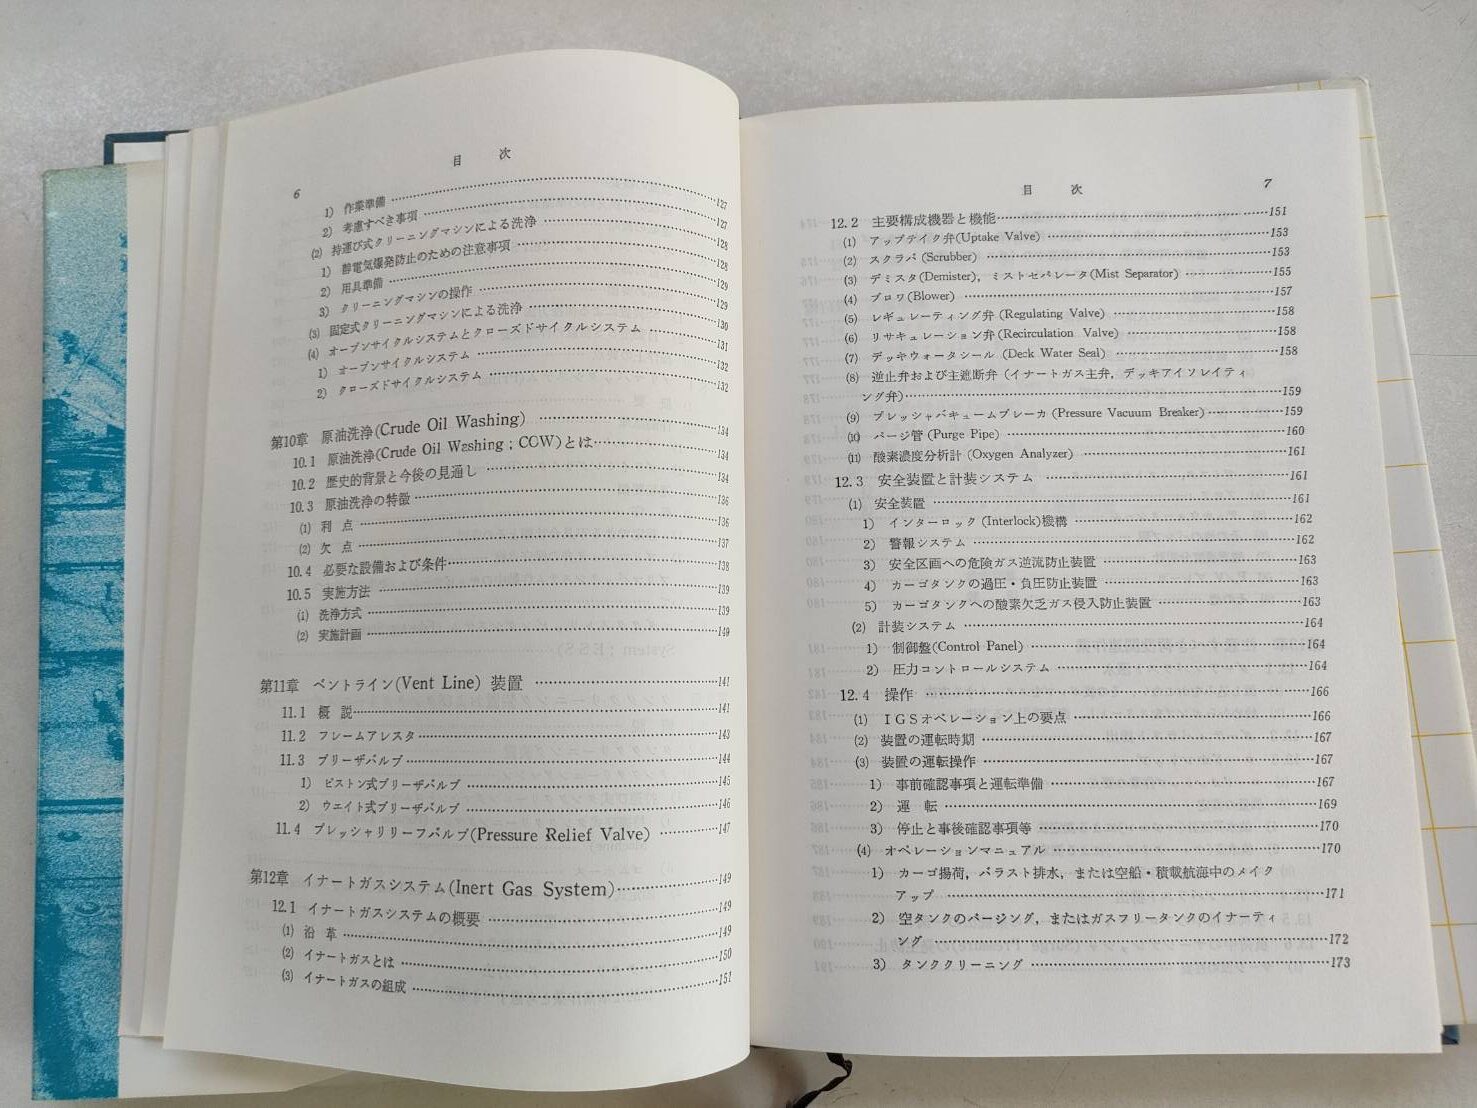 目 次
6
1) 作業準備……127
2) 考慮すべき事項……127
(2) 持運び式クリーニングマシンによる洗浄……128
1) 静電気爆発防止のための注意事項……128
2) 用具準備……129
3) クリーニングマシンの操作……129
(3) 固定式クリーニングマシンによる洗浄……130
(4) オープンサイクルシステムとクローズドサイクルシステム……131
1) オープンサイクルシステム……132
2) クローズドサイクルシステム……132
第10章 原油洗浄(Crude Oil Washing)……134
10.1 原油洗浄(Crude Oil Washing ; COW)とは……134
10.2 歴史的背景と今後の見通し……134
10.3 原油洗浄の特徴……136
(1) 利 点……136
(2) 欠 点……137
10.4 必要な設備および条件……138
10.5 実施方法……139
(1) 洗浄方式……139
(2) 実施計画……149
第11章 ベントライン(Vent Line) 装置……141
11.1 概 説……141
11.2 フレームアレスタ……143
11.3 ブリーザバルブ……144
1) ピストン式ブリーザバルブ……145
2) ウエイト式ブリーザバルブ……146
11.4 プレッシャリリーフバルブ(Pressure Relief Valve)……147
第12章 イナートガスシステム(Inert Gas System)……149
12.1 イナートガスシステムの概要……149
(1) 沿 革……149
(2) イナートガスとは……150
(3) イナートガスの組成……151
目 次
7
12.2 主要構成機器と機能……151
(1) アップテイク弁(Uptake Valve)……153
(2) スクラバ (Scrubber)……153
(3) デミスタ(Demister), ミストセパレータ(Mist Separator)……155
(4) ブロワ(Blower)……157
(5) レギュレーティング弁 (Regulating Valve)……158
(6) リサキュレーション弁(Recirculation Valve)……158
(7) デッキウォータシール (Deck Water Seal)……158
(8) 逆止弁および主遮断弁 (イナートガス主弁, デッキアイソレイティ
ング弁)……159
(9) プレッシャバキュームブレーカ (Pressure Vacuum Breaker)……159
(10) パージ管 (Purge Pipe)……160
(11) 酸素濃度分析計 (Oxygen Analyzer)……161
12.3 安全装置と計装システム……161
(1) 安全装置……161
1) インターロック (Interlock)機構……162
2) 警報システム……162
3) 安全区画への危険ガス逆流防止装置……163
4) カーゴタンクの過圧・負圧防止装置……163
5) カーゴタンクへの酸素欠乏ガス侵入防止装置……163
(2) 計装システム……164
1) 制御盤(Control Panel)……164
2) 圧力コントロールシステム……164
12.4 操作……166
(1) IGSオペレーション上の要点……166
(2) 装置の運転時期……167
(3) 装置の運転操作……167
1) 事前確認事項と運転準備……167
2) 運 転……169
3) 停止と事後確認事項等……170
(4) オペレーションマニュアル……170
1) カーゴ揚荷, バラスト排水, または空船・積載航海中のメイク
アップ……171
2) 空タンクのパージング, またはガスフリータンクのイナーティ
ング……172
3) タンククリーニング……173